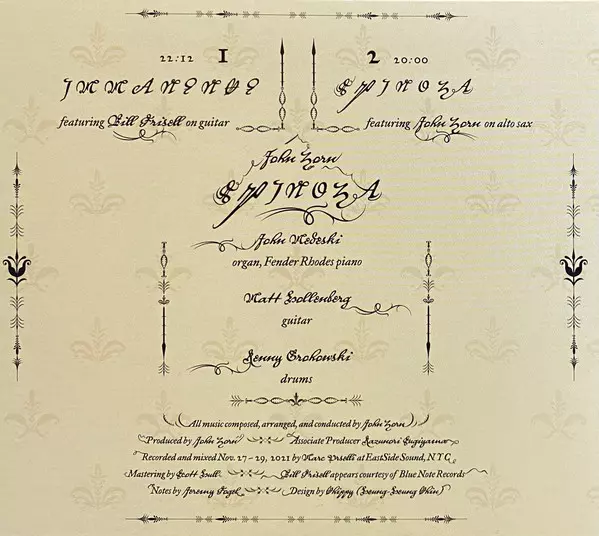 22:12 1
IMMANENCE
featuring Bill Frisell on guitar
2 20:00
SPINOZA
featuring John Zorn on alto sax
John Zorn
SPINOZA
John Medeski
organ, Fender Rhodes piano
Matt Hollenberg
guitar
Kenny Grohowski
drums
All music composed, arranged, and conducted by John Zorn
Produced by John Zorn Associate Producer Kazunori Sugiyama
Recorded and mixed Nov. 27 – 29, 2021 by Marc Urselli at EastSide Sound, NYC
Mastering by Scott Hull Bill Frisell appears courtesy of Blue Note Records
Notes by Jeremy Fogel Design by Chippy (Heung-Heung Chin)